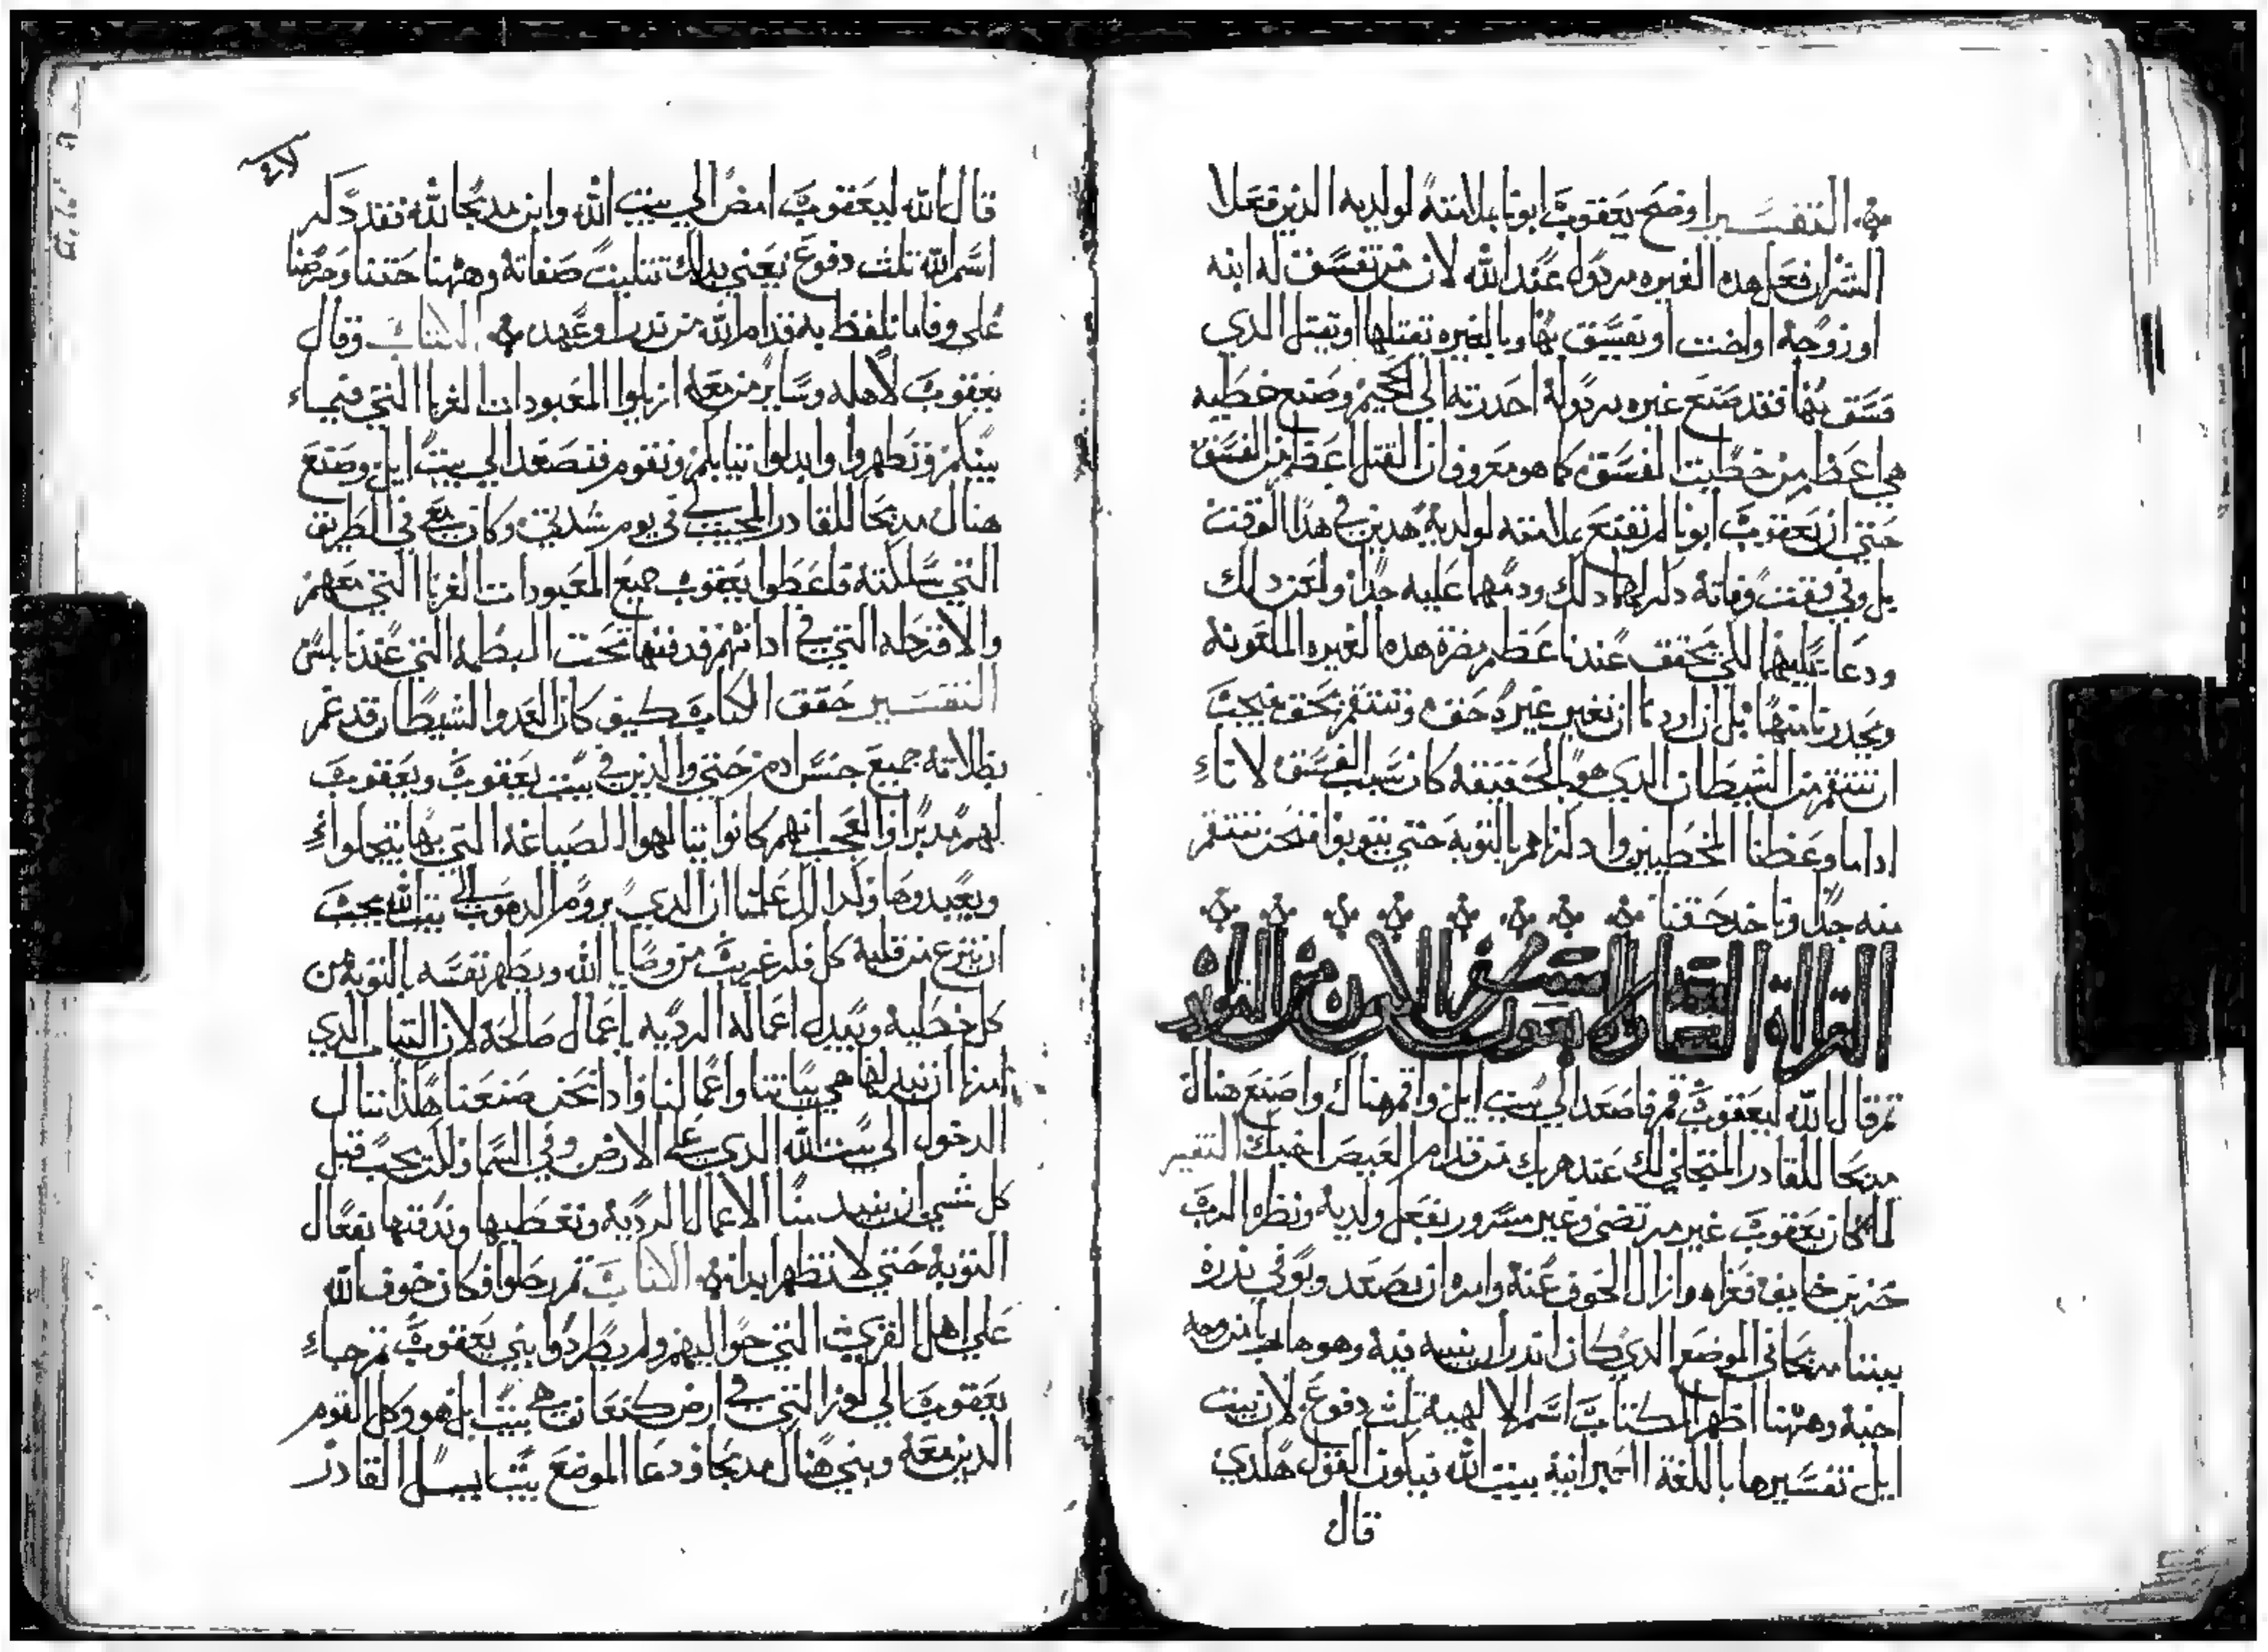 التفسير اوضح يعقوب ابونا بملامته لولديه الذين فعلا
الشر ان فعل هذه الغيره مردول عند الله لان من تفسق له ابنه
او زوجه او اخت او تفسق بها وبالغيره يقتلها او يقتل الدي
فسق بها فقد صنع غيره مردوله احدرته الي الجحيم وصنع خطيه
هي اعظم من خطيت الفسق كما هو معروف ان القتل اعظم من الفسق
حتي ان يعقوب ابونا لم تقتنع ملامته لولديه هدين في هدا الوقت
بل وفي وقت وفاته دكر لهما دلك ودمهما عليه جدا ولعن دلك
ودعا عليهما لكي يحقق عندنا عظم مضرة هده الغيره الملعونه
ويحدرنا منها بل ان اردنا ان نغير غيره حق وننتقم بحق فيجب
ان ننتقم من الشيطان الدي هو بالحقيقه كان سبب الفسق لانا
ادا ما وعظنا المخطيين وادكرناهم بالتوبه حتي يتوبوا فنحن ننتقم
منه جدا وناخد حقنا
القراة الاصحاح من التوراه
ثم قال الله ليعقوب قم فاصعد الي بيت ايل واقم هناك واصنع هناك
مدبحا للقادر المتجلي لك عند هربك من قدام العيص اخيك التفسير
لما كان يعقوب غير مرتضي وغير مسرور بفعل ولديه ونظره الرب
حزين خايف فعزاه وازال الخوف عنه وامره ان يصعد ويوفي ندره
ببنا مدبحا في الموضع الدي كان اندر ان يبنيه فيه وهو هارب من وجه
اخيه وههنا اظهر الكتاب اسم الالهيه تلت دفوع لان بيت
ايل تفسيرها باللغة العبرانية بيت الله فيكون القول هكدي
قال
قال الله ليعقوب امض الي بيت الله وابن مدبحا لله فقد دكر
اسم الله تلت دفوع يعني بدلك تتليت صفاته وههنا حتنا وحرضنا
علي وفا ما نلفظ به قدام الله من ندر او عهد الكتاب وقال
يعقوب لاهله وساير من معه ازيلوا المعبودات الغربا التي فيما
بينكم وتطهروا وابدلوا تيابكم ونقوم فنصعد الي بيت ايل وصنع
هناك مدبحا للقادر المجيب لي في يوم شدتي وكان معي في الطريق
التي سلكته فاعطوا يعقوب جميع المعبودات الغربا التي معهم
والاقرطه التي في ادانهم فدفنها تحت البطمه التي عند نابلس
التفسير حقق الكتاب كيف كان العدو الشيطان قد عم
بظلالته جميع جنس ادم حتي والدين في بيت يعقوب ويعقوب
لهم مدبرا والعجب انهم كانوا
ان الدي يروم الدهوب الي بيت الله يجب
ان ينزع من قلبه كل فكر غريب من وصايا الله ويطهر نفسه بالتوبه من
كل خطيه ويبدل اعماله الرديه باعمال صالحة لان التياب الدي
امرنا ان نبدلها هي نياتنا واعمالنا وادا نحن صنعنا هكدا ننال
الدخول الي بيت الله الدي علي الارض وفي السما ولكن يجب قبل
كل شي ان نبيد منا الاعمال الرديه ونغطيها وندفنها بفعال
التوبه حتي لا تظهر ابدا الكتاب ثم رحلوا فكان خوف الله
علي اهل القري التي حواليهم ولم يطردوا بني يعقوب ثم جاء
يعقوب الي لوزا التي في ارض كنعان هي بيت ايل هو وكل القوم
الدين معه وبني هناك مدبحا ودعا الموضع بيت ايل القادر